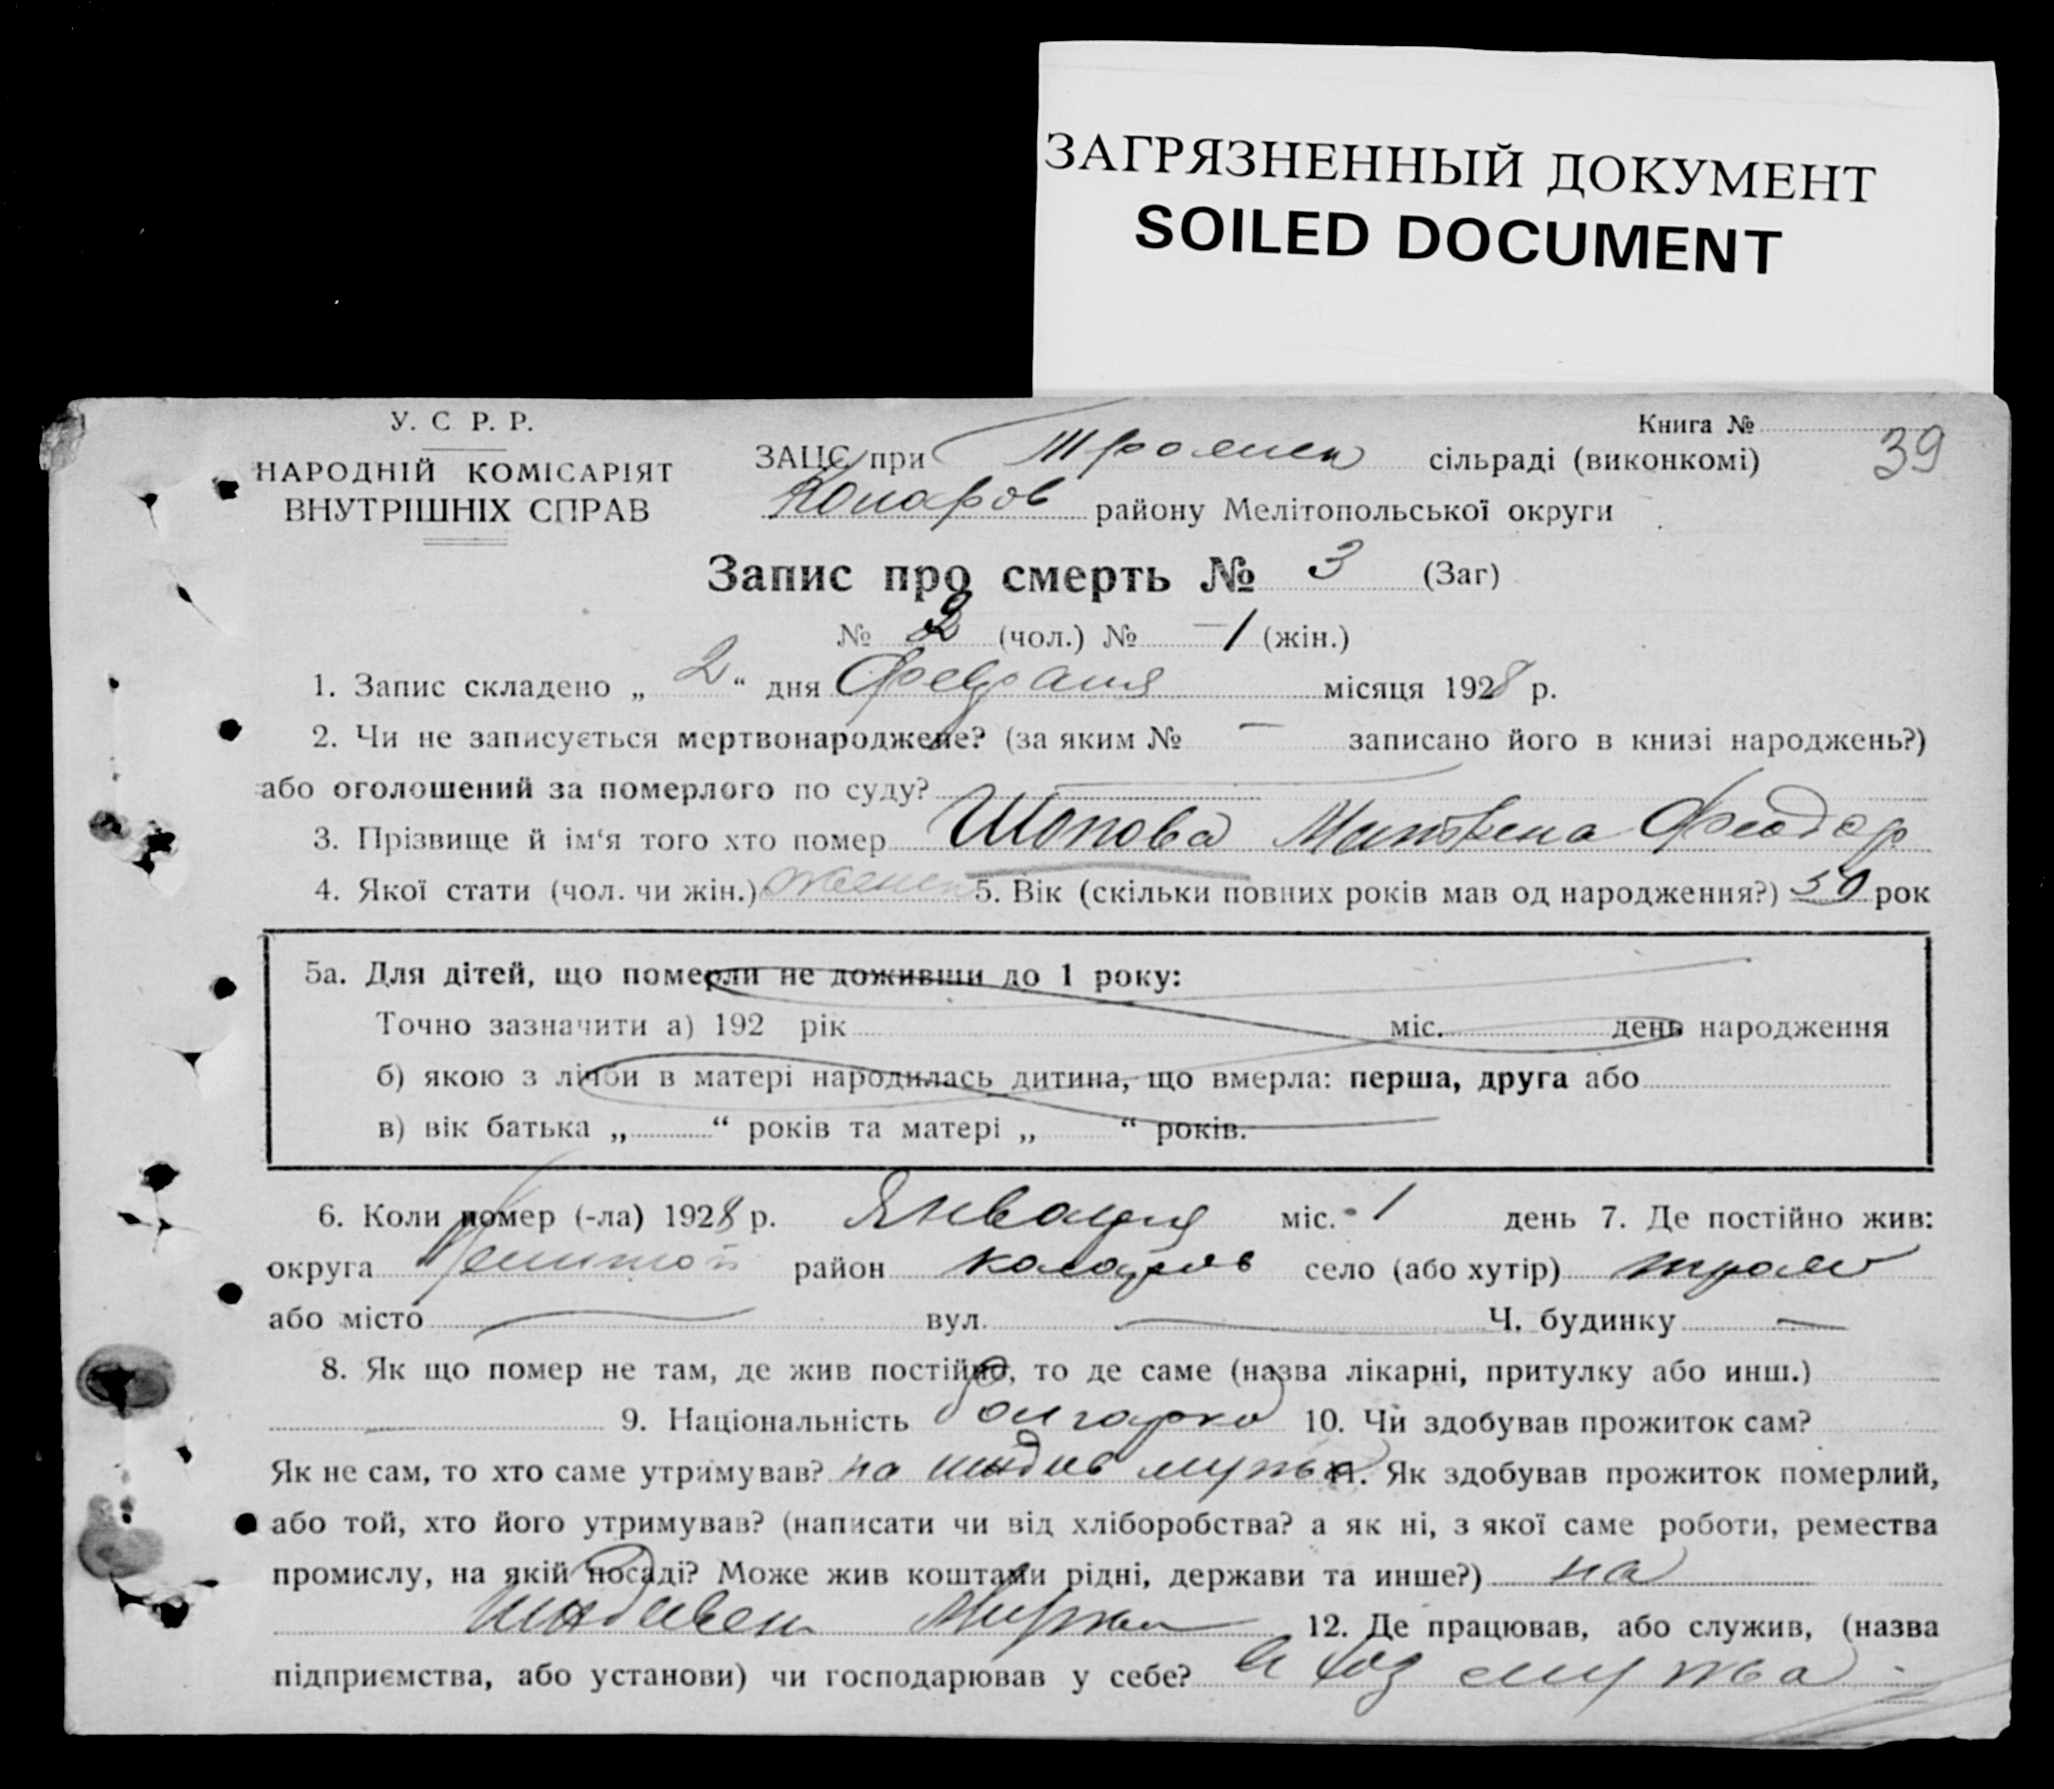 ЗАГРЯЗНЕННЫЙ ДОКУМЕНТ
SOILED DOCUMENT
У. С. Р. Р.
НАРОДНІЙ КОМІСАРІЯТ
ВНУТРІШНІХ СПРАВ
Книга №
39
ЗАЦС при сільраді (виконкомі)
району Мелітопольської округи
Запис про смерть № 3 (Заг)
№ 2 (чол.) № 1 (жін.)
1. Запис складено „ 2 “ дня Февраля місяця 1928 р.
2. Чи не записується мертвонароджене? (за яким № — записано його в книзі народжень?)
або оголошений за померлого по суду?
3. Прізвище й ім‘я того хто помер Шопова Феодор
4. Якої стати (чол. чи жін.) женск 5. Вік (скільки повних років мав од народження?) 50 рок
5а. Для дітей, що померли не доживши до 1 року:
Точно зазначити а) 192 рік міс. день народження
б) якою з лічби в матері народилась дитина, що вмерла: перша, друга або
в) вік батька „ “ років та матері „ “ років.
6. Коли помер (-ла) 1928 р. Января міс. 1 день 7. Де постійно жив:
округа район село (або хутір) троян
або місто — вул. — Ч. будинку —
8. Як що помер не там, де жив постійно, то де саме (назва лікарні, притулку або инш.)
9. Національність болгарка 10. Чи здобував прожиток сам?
Як не сам, то хто саме утримував? на иждив мужа 11. Як здобував прожиток померлий,
або той, хто його утримував? (написати чи від хліборобства? а як ні, з якої саме роботи, ремества
промислу, на якій посаді? Може жив коштами рідні, держави та инше?) на
иждивен Мужа 12. Де працював, або служив, (назва
підприємства, або установи) чи господарював у себе? в хоз мужа